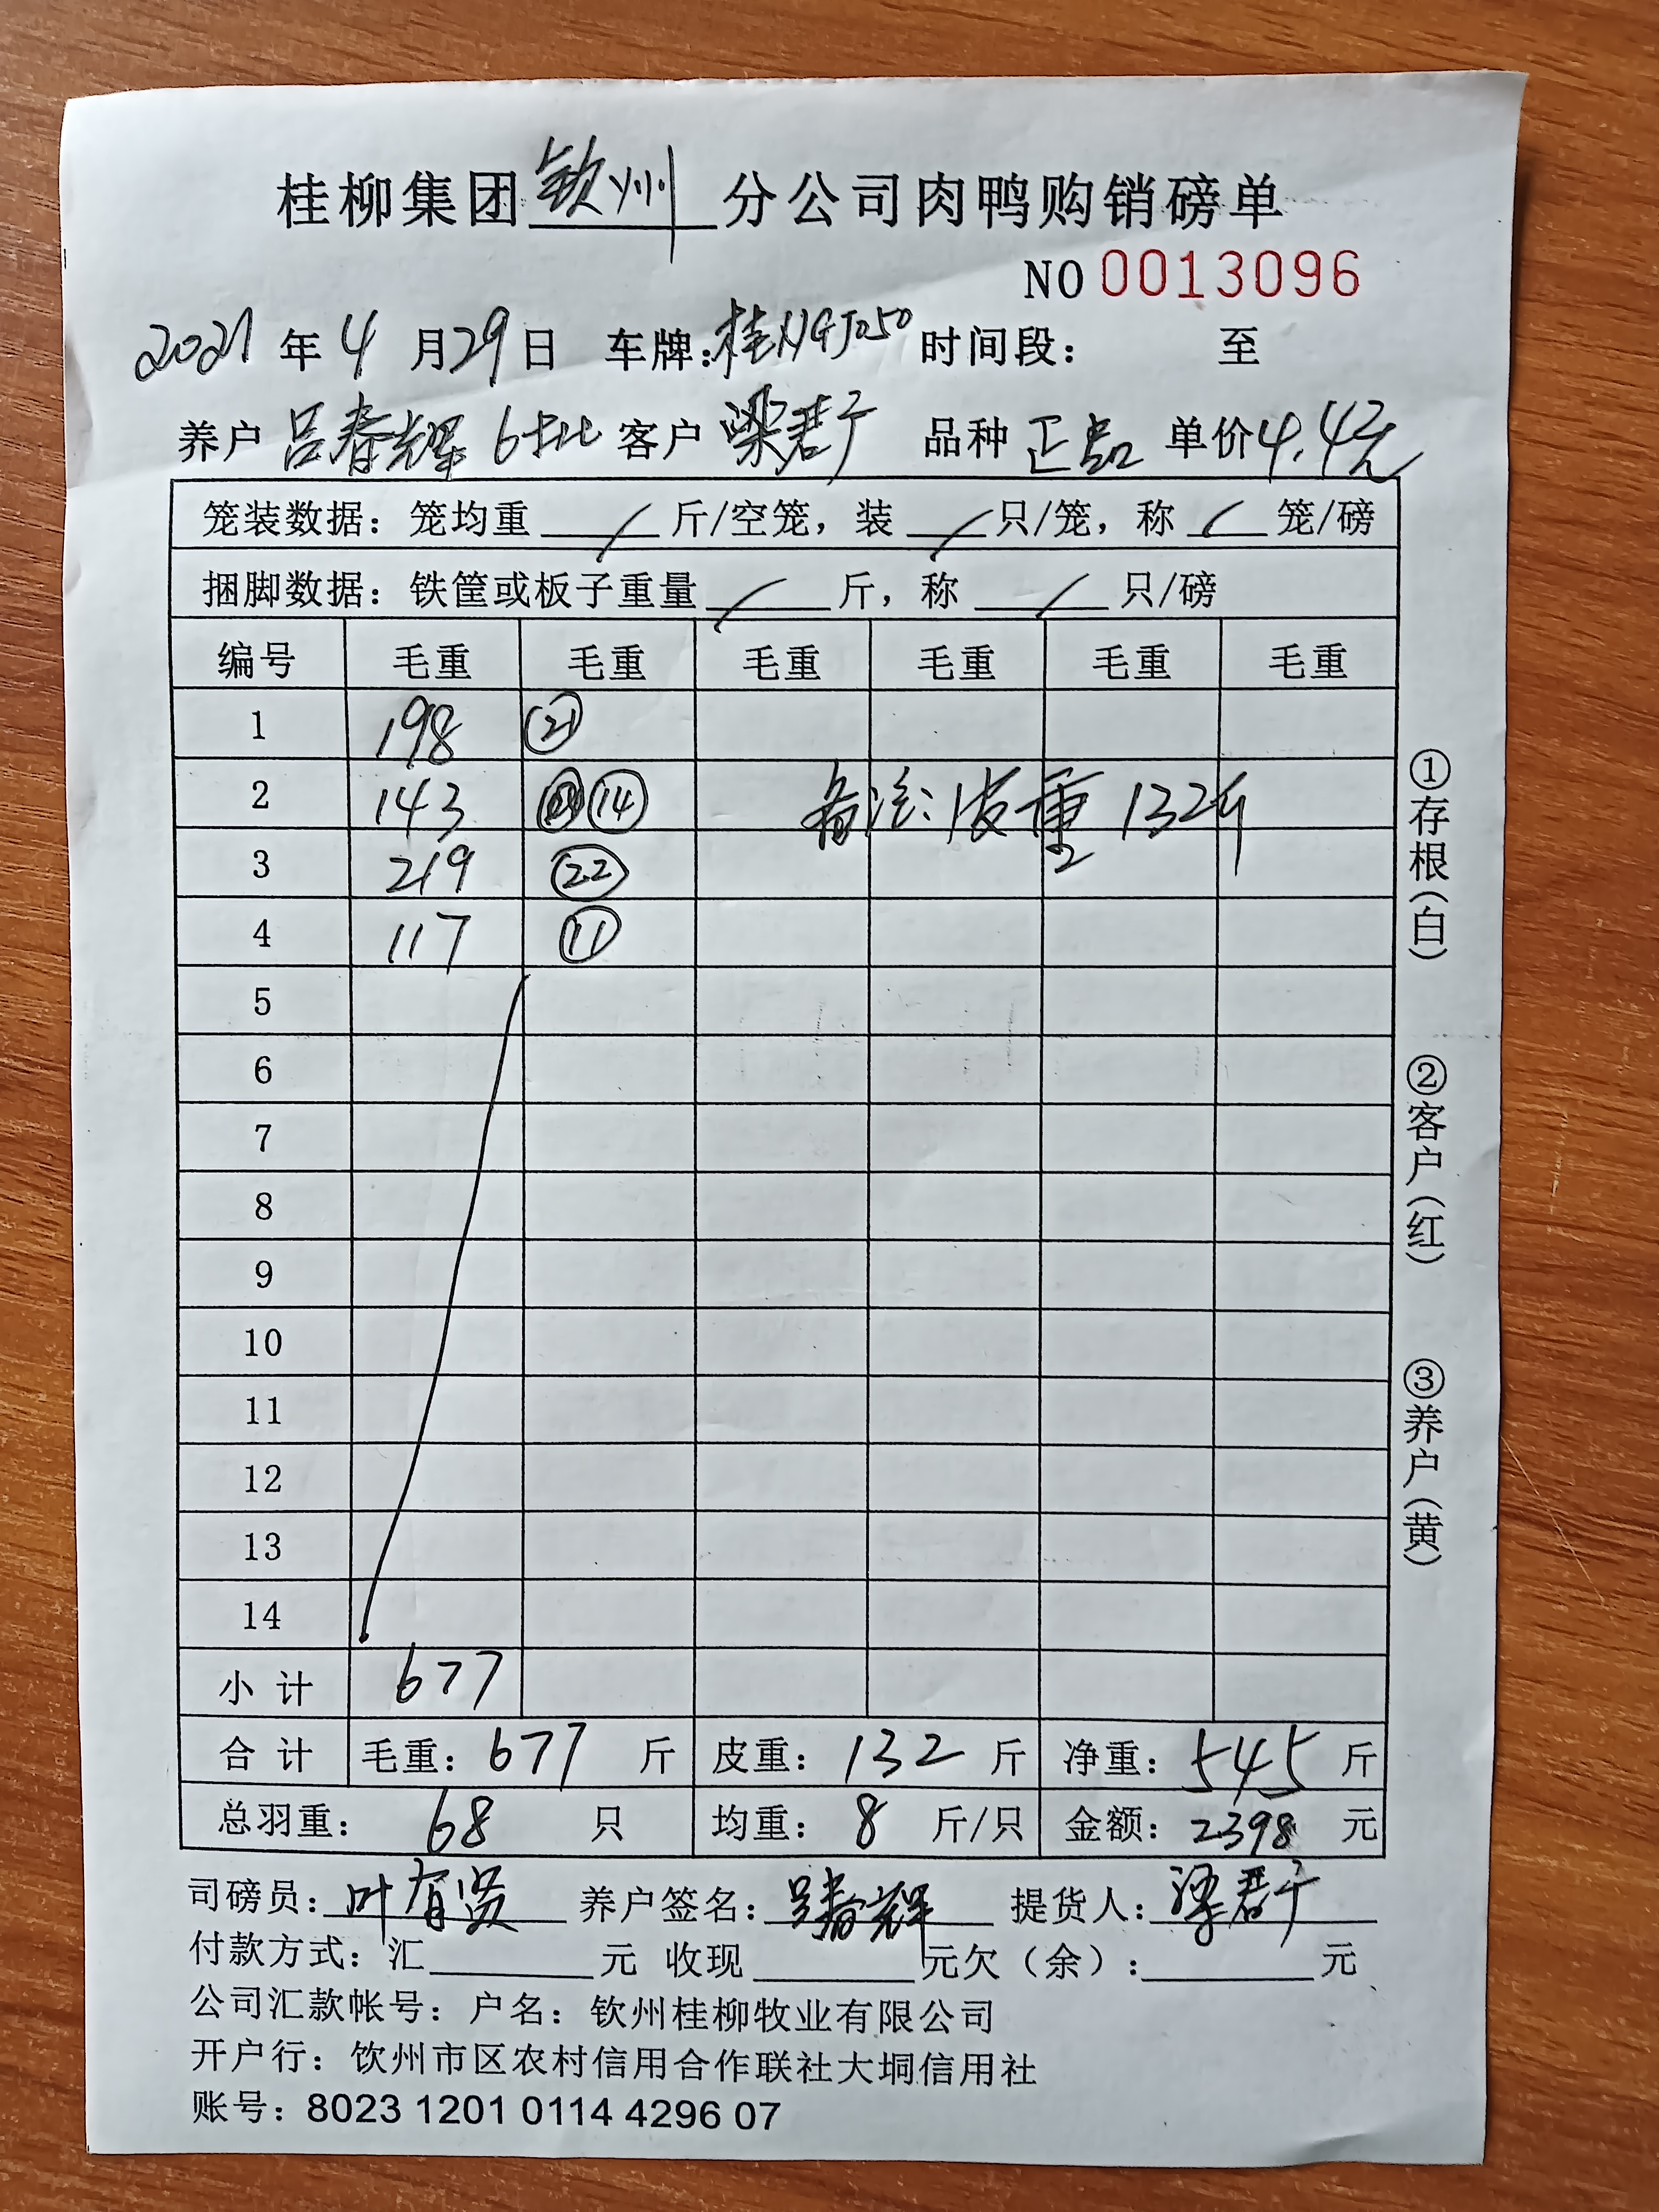 桂柳集团钦州分公司肉鸭购销磅单
NO 0013096
2021年4月29日 车牌:桂NGJ050 时间段: 至
养户 吕春辉 6批 客户 梁君于 品种 正品 单价4.4元
笼装数据:笼均重 / 斤/空笼,装 / 只/笼,称 / 笼/磅
捆脚数据:铁筐或板子重量 / 斤,称 / 只/磅
编号 毛重 毛重 毛重 毛重 毛重 毛重
1 198 21
2 143 14 备注:皮重132斤
3 219 22
4 117 11
5
6
7
8
9
10
11
12
13
14
小计 677
合计 毛重:677斤 皮重:132斤 净重:545斤
总羽重:68只 均重:8斤/只 金额:2398元
司磅员:叶有贤 养户签名:吕春辉 提货人:梁君于
付款方式:汇 元 收现 元欠(余): 元
公司汇款帐号:户名:钦州桂柳牧业有限公司
开户行:钦州市区农村信用合作联社大垌信用社
账号:8023 1201 0114 4296 07
①存根(白)
②客户(红)
③养户(黄)